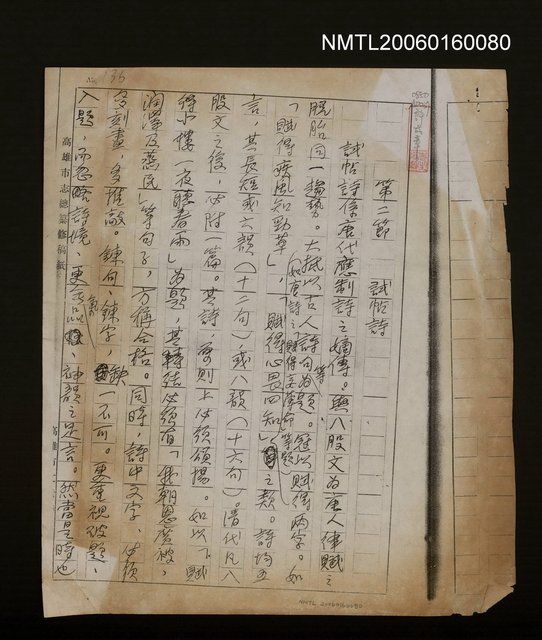 NMTL20060160080
第二節 試帖詩
試帖詩係唐代應制詩之嫡傳。與八股文為唐人律賦之
脫胎同一趨勢。大抵以古人詩句等為題。冠以賦得兩字。如
「賦得疾風知勁草」,「賦得心畏四知」之類。詩均五
言,其長短或六韻(十二句)或八韻(十六句)。清代凡八
股文之後,必附一篇。其詩,原則上必須頌揚。如以「賦
得小樓一夜聽春雨」為題,其轉結必須有「聖朝恩廣被,
潤澤及蒸民」等句子,方稱合格。同時,詩中文字,必須
多刻畫,多推敲。鍊句,鍊字,缺一不可。更重視破題,
入題,而忽略詩境,更無氣品、神韻之足言。然當是時也
高雄市志總纂修稿紙
No. 36
NMTL 20060160080